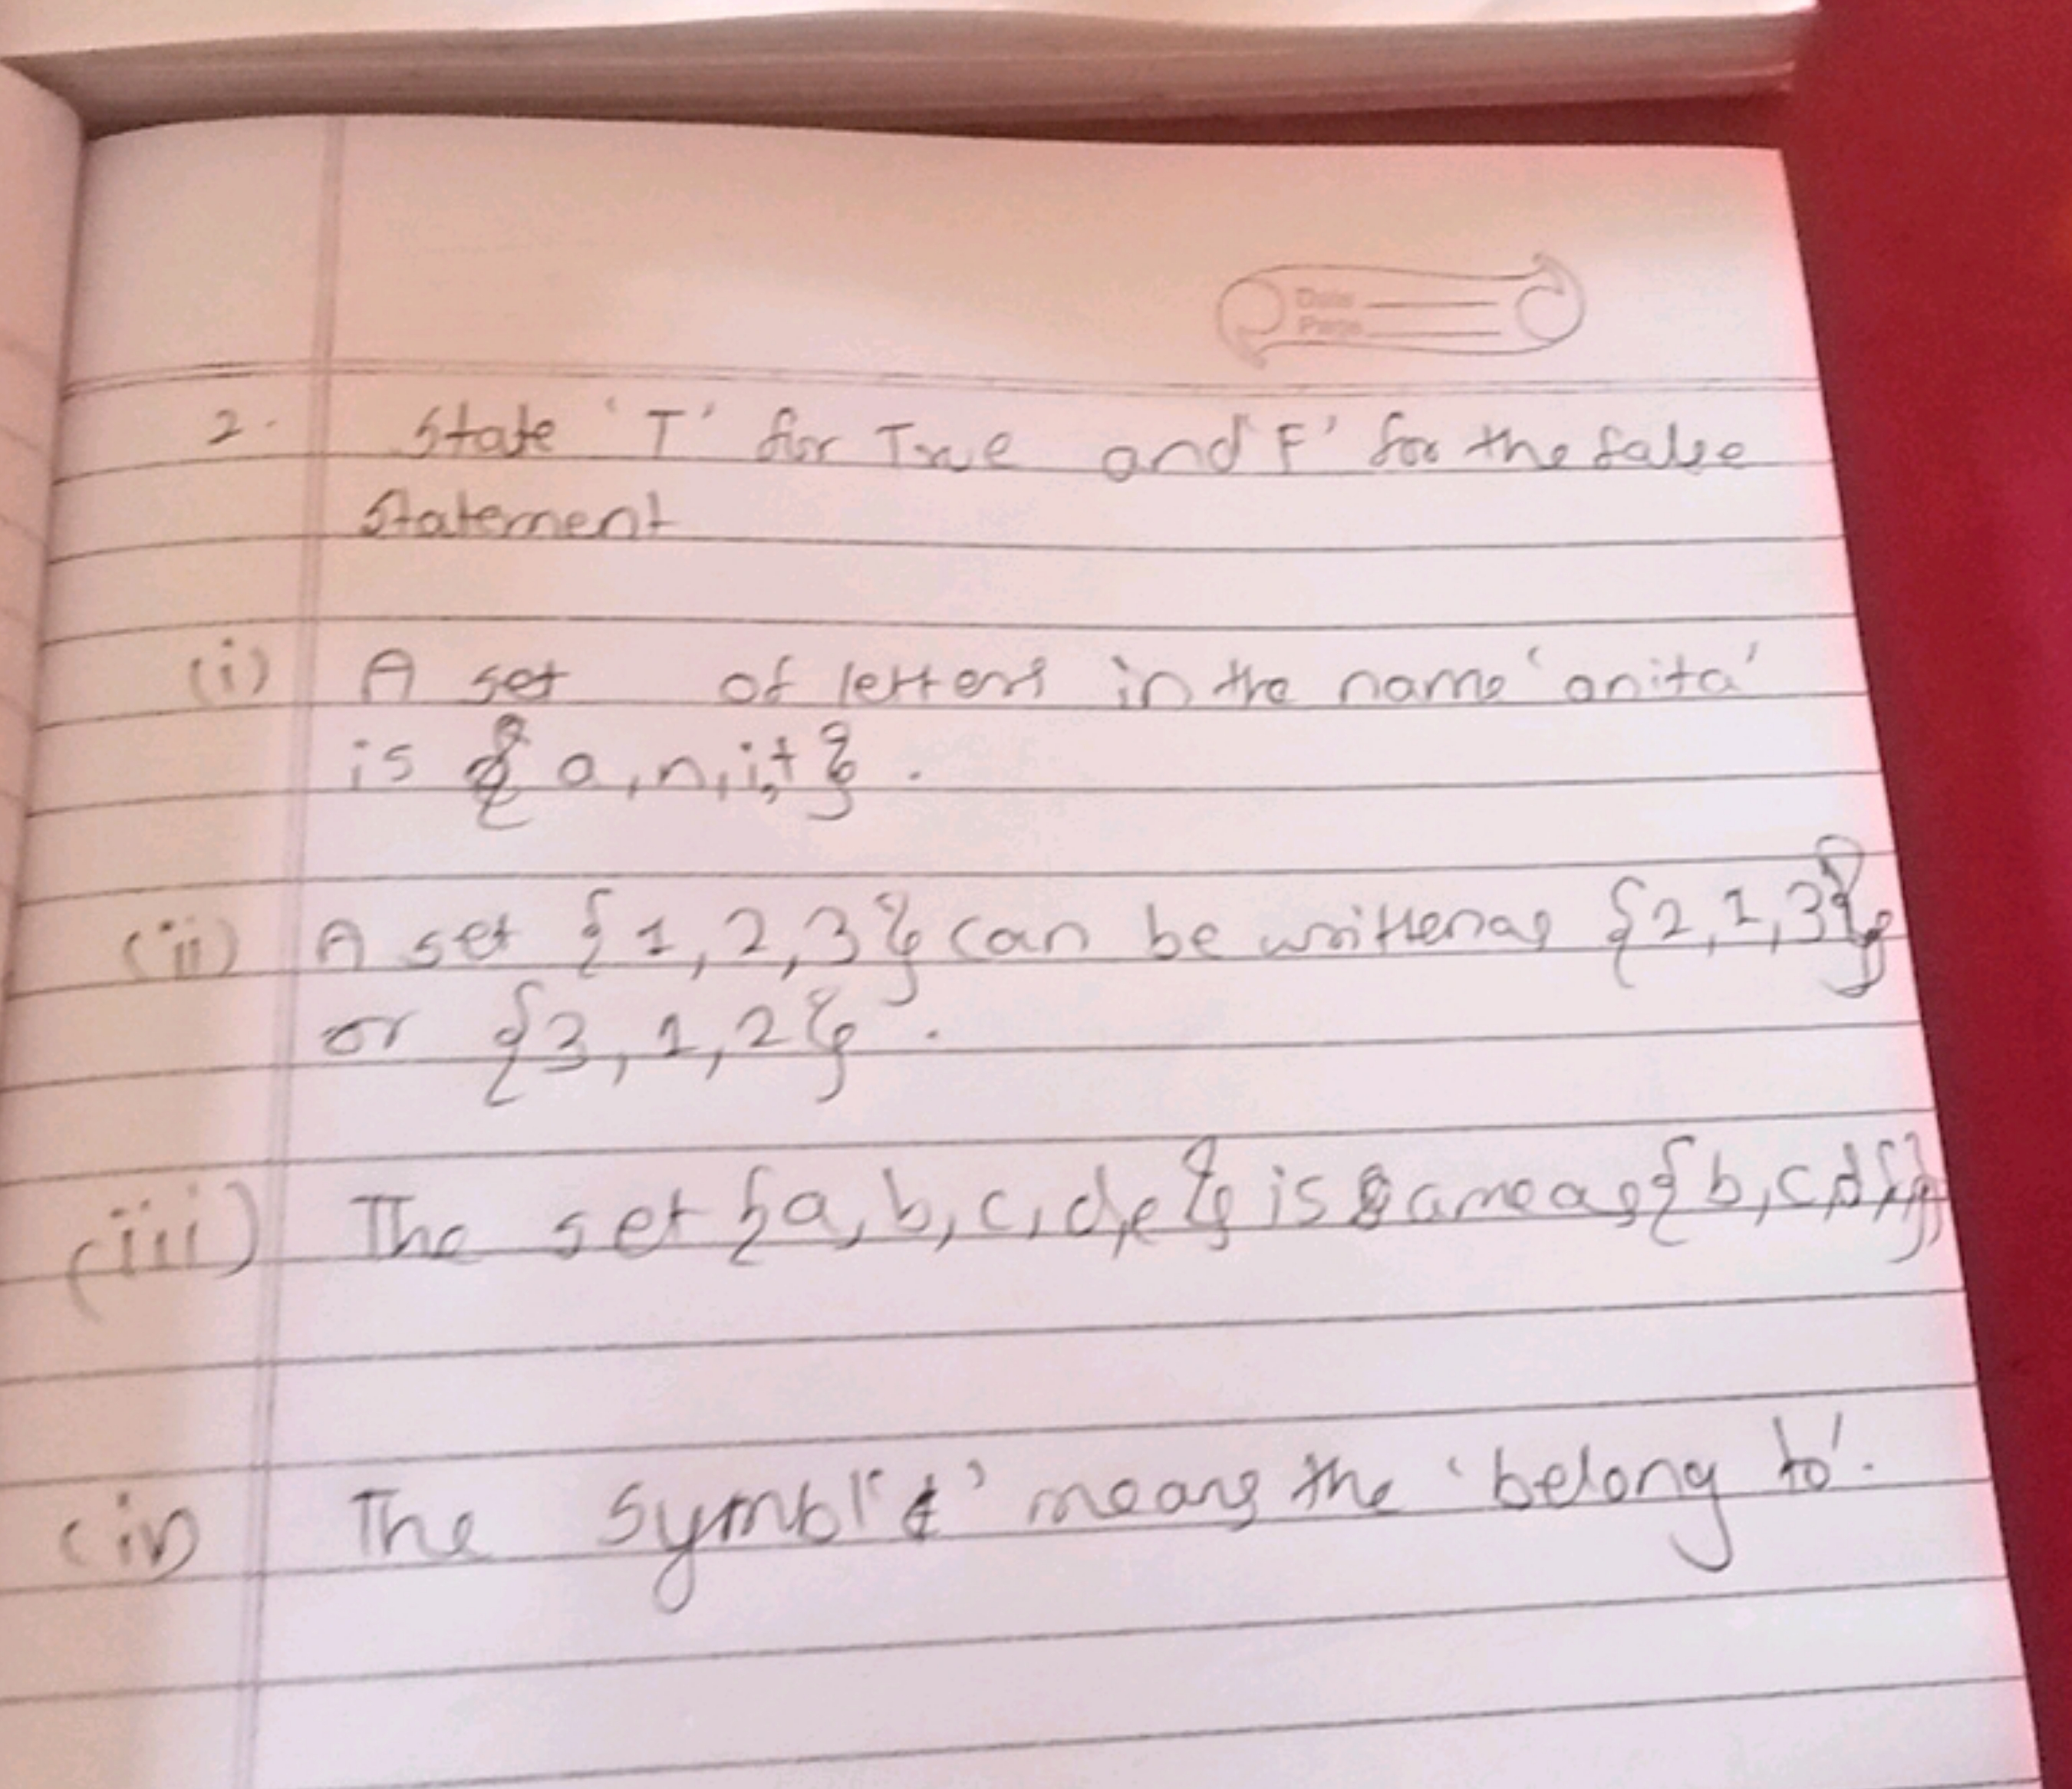 Date
Page
2. State 'T' for True and 'F' for the false
statement
(i) A set of letters in the name 'anita'
is {a,n,i,t}.
(ii) A set {1,2,3} can be written as {2,1,3}
or {3,1,2}.
(iii) The set {a,b,c,d,e} is same as {b,c,d,
(iv) The symbl '∉' means the 'belong to'.